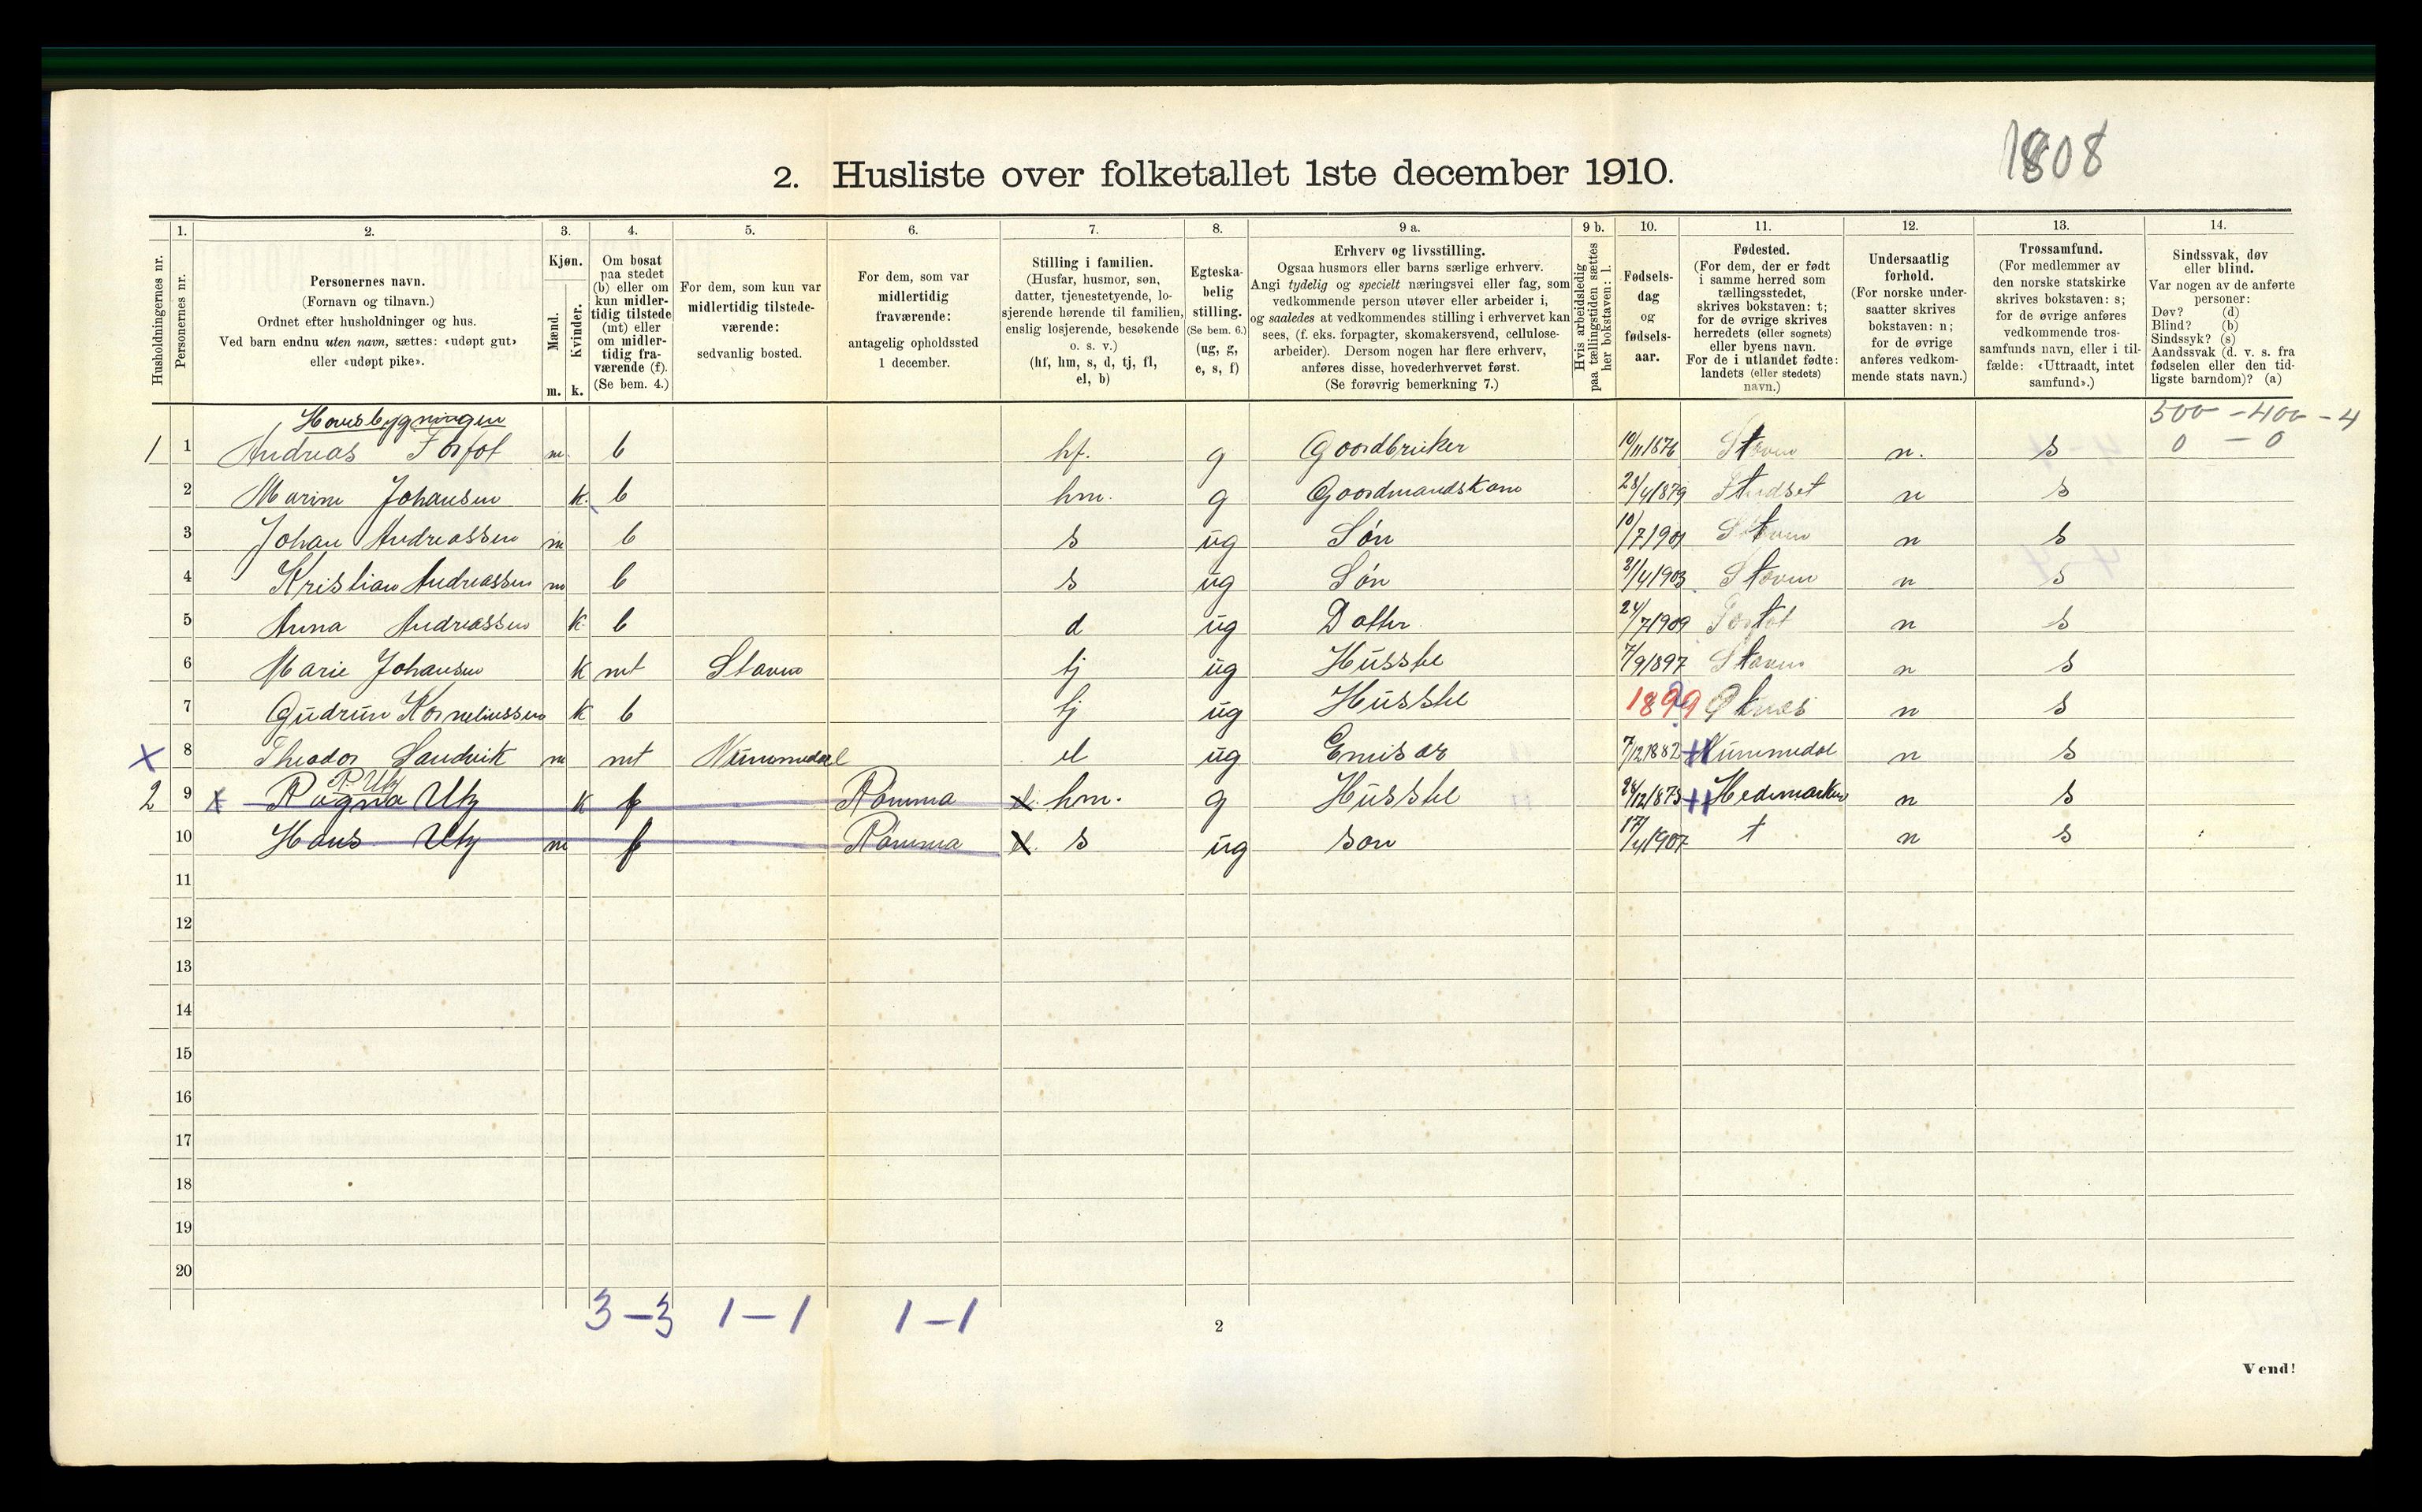 1808
2. Husliste over folketallet 1ste december 1910.
Husholdningernes nr.
1.
Personernes nr.
2.
Personernes navn.
(Fornavn og tilnavn.)
Ordnet efter husholdninger og hus.
Ved barn endnu uten navn, sættes: «udøpt gut»
eller «udøpt pike».
3.
Kjøn.
Mænd.
Kvinder.
m. k.
4.
Om bosat
paa stedet
(b) eller om
kun midler-
tidig tilstede
(mt) eller
om midler-
tidig fra-
værende (f).
(Se bem. 4.)
5.
For dem, som kun var
midlertidig tilstede-
værende:
sedvanlig bosted.
6.
For dem, som var
midlertidig
fraværende:
antagelig opholdssted
1 december.
7.
Stilling i familien.
(Husfar, husmor, søn,
datter, tjenestetyende, lo-
sjerende hørende til familien,
enslig losjerende, besøkende
o. s. v.)
(hf, hm, s, d, tj, fl,
el, b)
8.
Egteska-
belig
stilling.
(Se bem. 6.)
(ug, g,
e, s, f)
9 a.
Erhverv og livsstilling.
Ogsaa husmors eller barns særlige erhverv.
Angi tydelig og specielt næringsvei eller fag, som
vedkommende person utøver eller arbeider i,
og saaledes at vedkommendes stilling i erhvervet kan
sees, (f. eks. forpagter, skomakersvend, cellulose-
arbeider). Dersom nogen har flere erhverv,
anføres disse, hovederhvervet først.
(Se forøvrig bemerkning 7.)
9 b.
Hvis arbeidsledig
paa tællingstiden sættes
her bokstaven: l.
10.
Fødsels-
dag
og
fødsels-
aar.
11.
Fødested.
(For dem, der er født
i samme herred som
tællingsstedet,
skrives bokstaven: t;
for de øvrige skrives
herredets (eller sognets)
eller byens navn.
For de i utlandet fødte:
landets (eller stedets)
navn.)
12.
Undersaatlig
forhold.
(For norske under-
saatter skrives
bokstaven: n;
for de øvrige
anføres vedkom-
mende stats navn.)
13.
Trossamfund.
(For medlemmer av
den norske statskirke
skrives bokstaven: s;
for de øvrige anføres
vedkommende tros-
samfunds navn, eller i til-
fælde: «Uttraadt, intet
samfund».)
14.
Sindssvak, døv
eller blind.
Var nogen av de anførte
personer:
Døv? (d)
Blind? (b)
Sindssyk? (s)
Aandssvak (d. v. s. fra
fødselen eller den tid-
ligste barndom)? (a)
Hovsbygningen 500 - 400 - 4
1 1 Andreas Forfot m. b hf. g Goordbruker 10/11 1876 Staven n. s 0 - 0
2 Marine Johansen k. b hm. g Goordmandskone 28/4 1879 n s
3 Johan Andreassen m b s ug Søn 10/7 1901 Staven n s
4 Kristian Andreassen m b s ug Søn /4 1903 Staven n s
5 Anna Andreassen k b d ug Dotter 24/7 1909 n s
6 Marie Johansen k mt Staven tj ug Husstel 7/9 1897 Staven n s
7 Gudrun Korneliussen k b tj ug Husstel 1899 Øknæs n s
X 8 Theodor Sandvik m mt Nummedal el ug Emisær 7/12 1882 Nummedal n s
R Utz
2 9 X Ragna Utz k f Römma hm. g Husstel 28/12 1875 Hedemarken n s
10 Hans Utz m f Römma s ug son 17/4 1907 t n s
11
12
13
14
15
16
17
18
19
20
3 - 3 1 - 1 1 - 1
2
Vend!